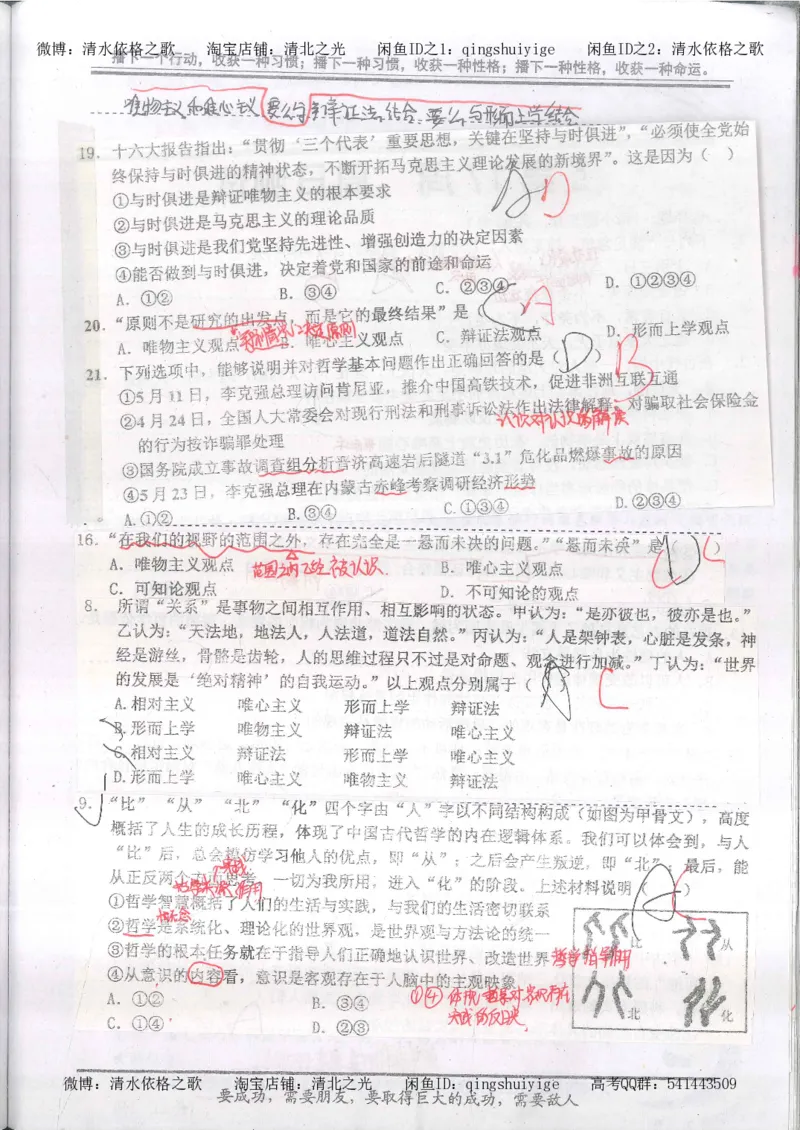 微博：清水依格之歌　　淘宝店铺：清北之光　　闲鱼ID之1：qingshuiyige　　闲鱼ID之2：清水依格之歌
播下一个行动，收获一种习惯；播下一种习惯，收获一种性格；播下一种性格，收获一种命运。
唯物主义和唯心主义 要么与辩证法结合 要么与形而上学结合
19．十六大报告指出：“贯彻‘三个代表’重要思想，关键在坚持与时俱进”，“必须使全党始
终保持与时俱进的精神状态，不断开拓马克思主义理论发展的新境界”。这是因为（　）
A D
①与时俱进是辩证唯物主义的根本要求
②与时俱进是马克思主义的理论品质
③与时俱进是我们党坚持先进性、增强创造力的决定因素
④能否做到与时俱进，决定着党和国家的前途和命运
A．①②　　B．③④　　C．②③④　　D．①②③④
20．“原则不是研究的出发点，而是它的最终结果”是（C A
A．唯物主义观点　B．唯心主义观点　C．辩证法观点　D．形而上学观点
21．下列选项中，能够说明并对哲学基本问题作出正确回答的是（D）B
①5月11日，李克强总理访问肯尼亚，推介中国高铁技术，促进非洲互联互通
②4月24日，全国人大常委会对现行刑法和刑事诉讼法作出法律解释：对骗取社会保险金
的行为按诈骗罪处理
③国务院成立事故调查组分析晋济高速岩后隧道“3.1”危化品燃爆事故的原因
④5月23日，李克强总理在内蒙古赤峰考察调研经济形势
A.①②　　B.③④　　C.①③④　　D.②③④
16．“在我们的视野的范围之外，存在完全是一悬而未决的问题。”“悬而未决”是（D）C
A．唯物主义观点　范围之内已经被认识　B．唯心主义观点
C．可知论观点　　D．不可知论的观点
8．所谓“关系”是事物之间相互作用、相互影响的状态。甲认为：“是亦彼也，彼亦是也。”
乙认为：“天法地，地法人，人法道，道法自然。”丙认为：“人是架钟表，心脏是发条，神
经是游丝，骨骼是齿轮，人的思维过程只不过是对命题、观念进行加减。”丁认为：“世界
的发展是‘绝对精神’的自我运动。”以上观点分别属于（　C
A.相对主义　　唯心主义　　形而上学　　辩证法
B.形而上学　　唯物主义　　辩证法　　唯心主义
C.相对主义　　辩证法　　形而上学　　唯心主义
D.形而上学　　唯心主义　　唯物主义　　辩证法
9．“比”“从”“北”“化”四个字由“人”字以不同结构构成（如图为甲骨文），高度
概括了人生的成长历程，体现了中国古代哲学的内在逻辑体系。我们可以体会到，与人
“比”后，总会模仿学习他人的优点，即“从”；之后会产生叛逆，即“北”；最后，能
从正反两个方面思考，一切为我所用，进入“化”的阶段。上述材料说明（　）
①哲学智慧概括了人们的生活与实践，与我们的生活密切联系
②哲学是系统化、理论化的世界观，是世界观与方法论的统一
③哲学的根本任务就在于指导人们正确地认识世界、改造世界
④从意识的内容看，意识是客观存在于人脑中的主观映象
A．①②　　B．③④
C．①④　　D．②③
比　从
北　化
微博：清水依格之歌　　淘宝店铺：清北之光　　闲鱼ID之1：qingshuiyige　　高考QQ群：541443509
要成功，需要朋友，要取得巨大的成功，需要敌人